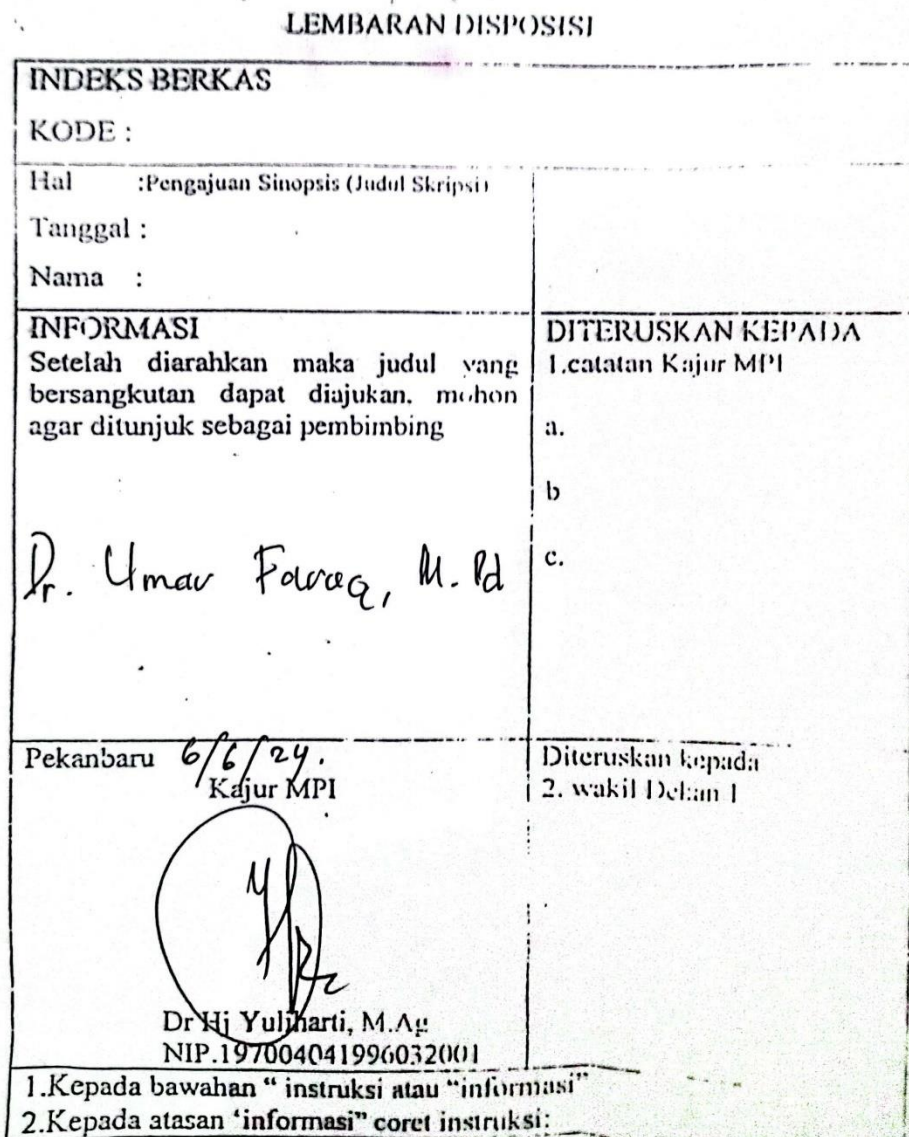 LEMBARAN DISPOSISI
INDEKS BERKAS
KODE :
Hal :Pengajuan Sinopsis (Judul Skripsi)
Tanggal :
Nama :
INFORMASI
Setelah diarahkan maka judul yang
bersangkutan dapat diajukan. mohon
agar ditunjuk sebagai pembimbing
Dr. Umar Faruq, M.Pd
DITERUSKAN KEPADA
1.catatan Kajur MPI
a.
b
c.
Pekanbaru 6/6/24.
Kajur MPI
Dr Hj Yuliharti, M.Ag
NIP.197004041996032001
Diteruskan kepada
2. wakil Dekan 1
1.Kepada bawahan “ instruksi atau “informasi”
2.Kepada atasan ‘informasi” coret instruksi: